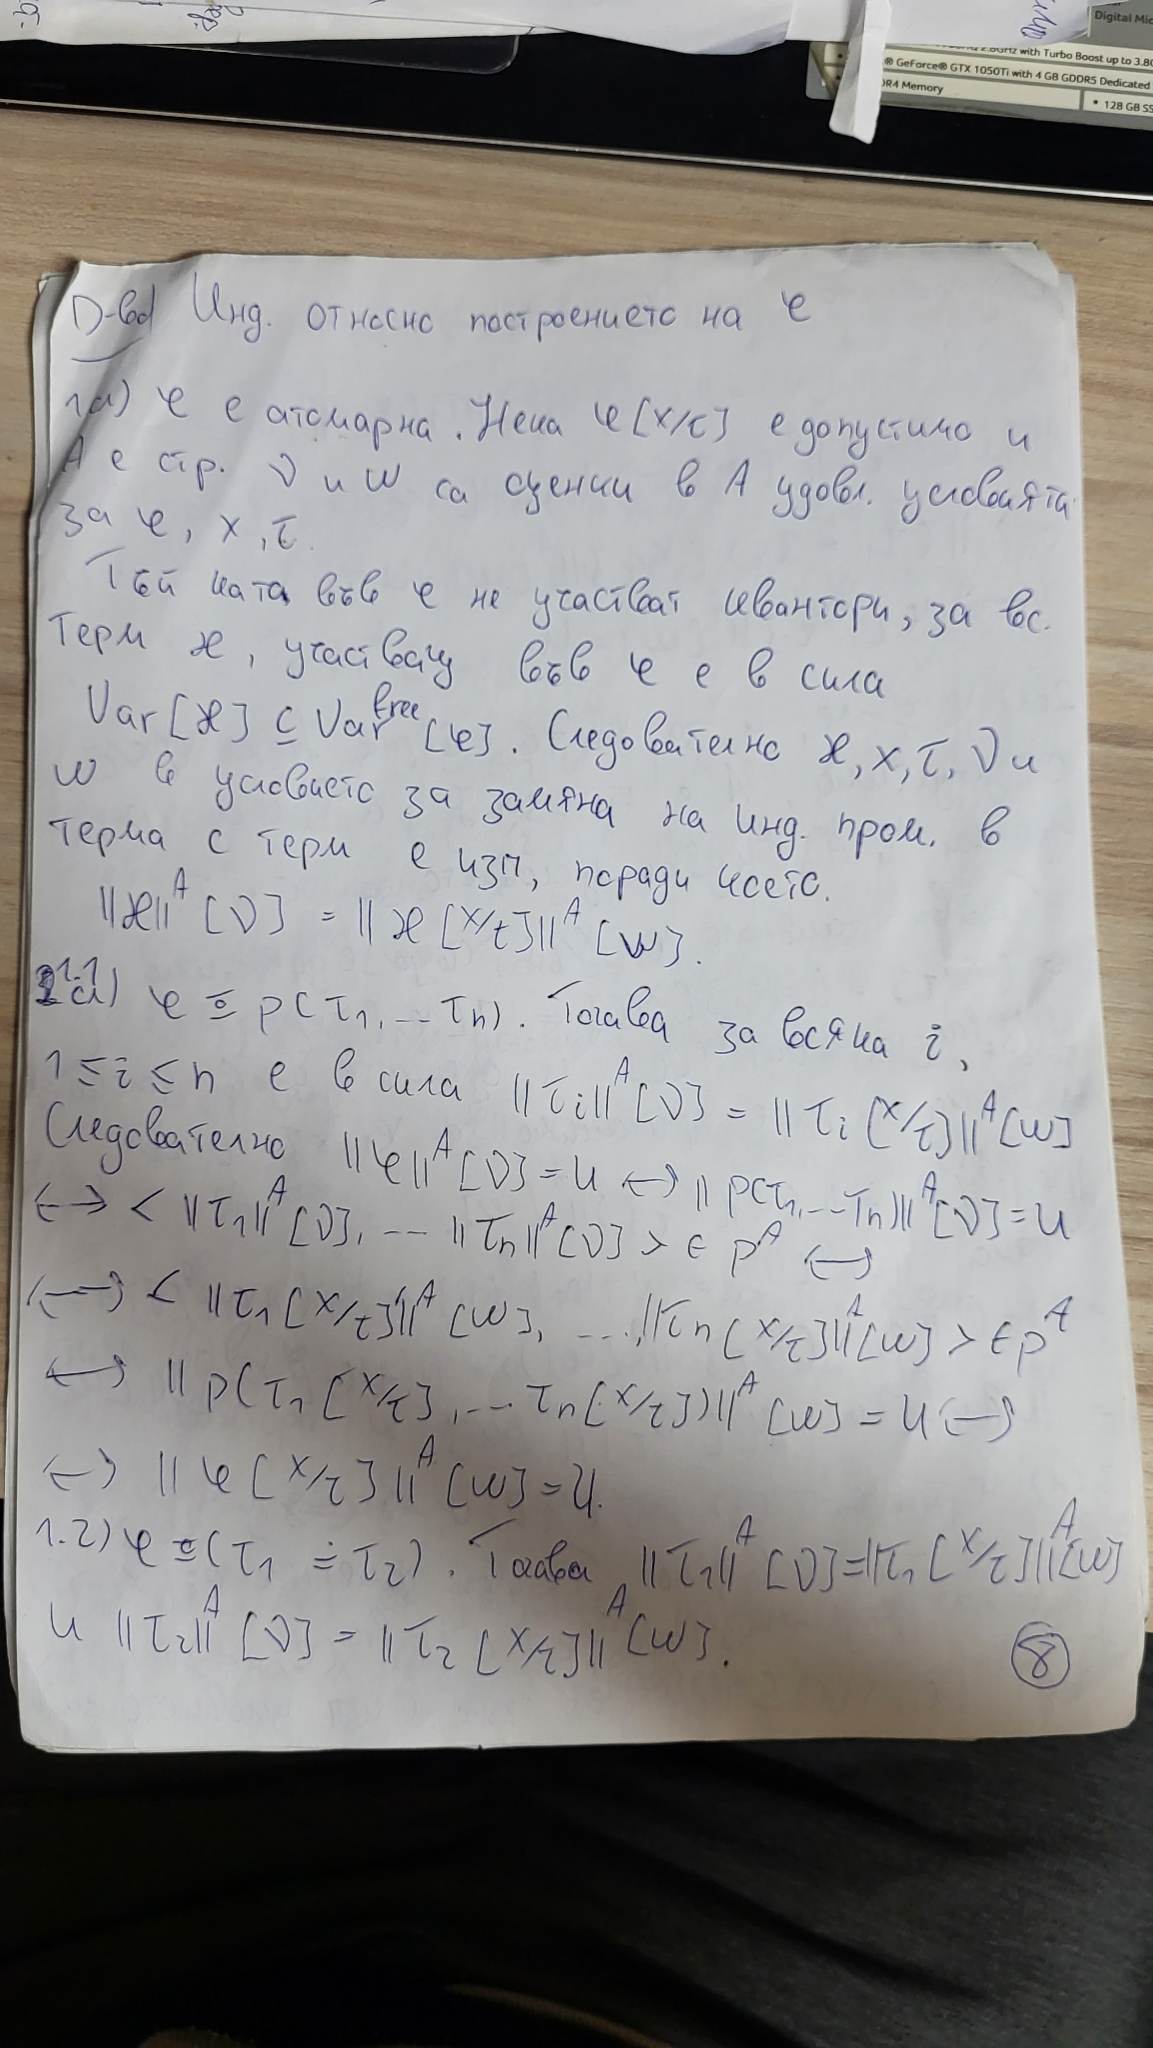 Digital Mic
2.8GHz with Turbo Boost up to 3.8G
® GeForce® GTX 1050Ti with 4 GB GDDR5 Dedicated
DR4 Memory
• 128 GB SS
Д-во Инд. относно построението на φ
1а) φ е атомарна. Нека φ[x/τ] е допустимо и
A е стр. ν и w са оценки в A удовл. условията
за φ, x, τ.
Тъй като във φ не участват квантори, за вс.
терм ϰ, участващ във φ е в сила
Var[ϰ] ⊆ Varᶠʳᵉᵉ[φ]. Следователно ϰ, x, τ, ν и
w в условието за замяна на инд. пром. в
терма с терм е изп, поради което.
||ϰ||ᴬ[ν] = ||ϰ[x/τ]||ᴬ[w].
1.1) φ ≗ p(τ₁, ... τₙ). Тогава за всяка i,
1 ≤ i ≤ n е в сила ||τᵢ||ᴬ[ν] = ||τᵢ[x/τ]||ᴬ[w]
Следователно ||φ||ᴬ[ν] = И ↔ ||p(τ₁, ... τₙ)||ᴬ[ν] = И
↔ < ||τ₁||ᴬ[ν], ... ||τₙ||ᴬ[ν] > ∈ pᴬ ↔
↔ < ||τ₁[x/τ]||ᴬ[w], ..., ||τₙ[x/τ]||ᴬ[w] > ∈ pᴬ
↔ ||p(τ₁[x/τ], ... τₙ[x/τ])||ᴬ[w] = И ↔
↔ ||φ[x/τ]||ᴬ[w] = И.
1.2) φ ≗ (τ₁ ≐ τ₂). Тогава ||τ₁||ᴬ[ν] = ||τ₁[x/τ]||ᴬ[w]
и ||τ₂||ᴬ[ν] = ||τ₂[x/τ]||ᴬ[w].
8